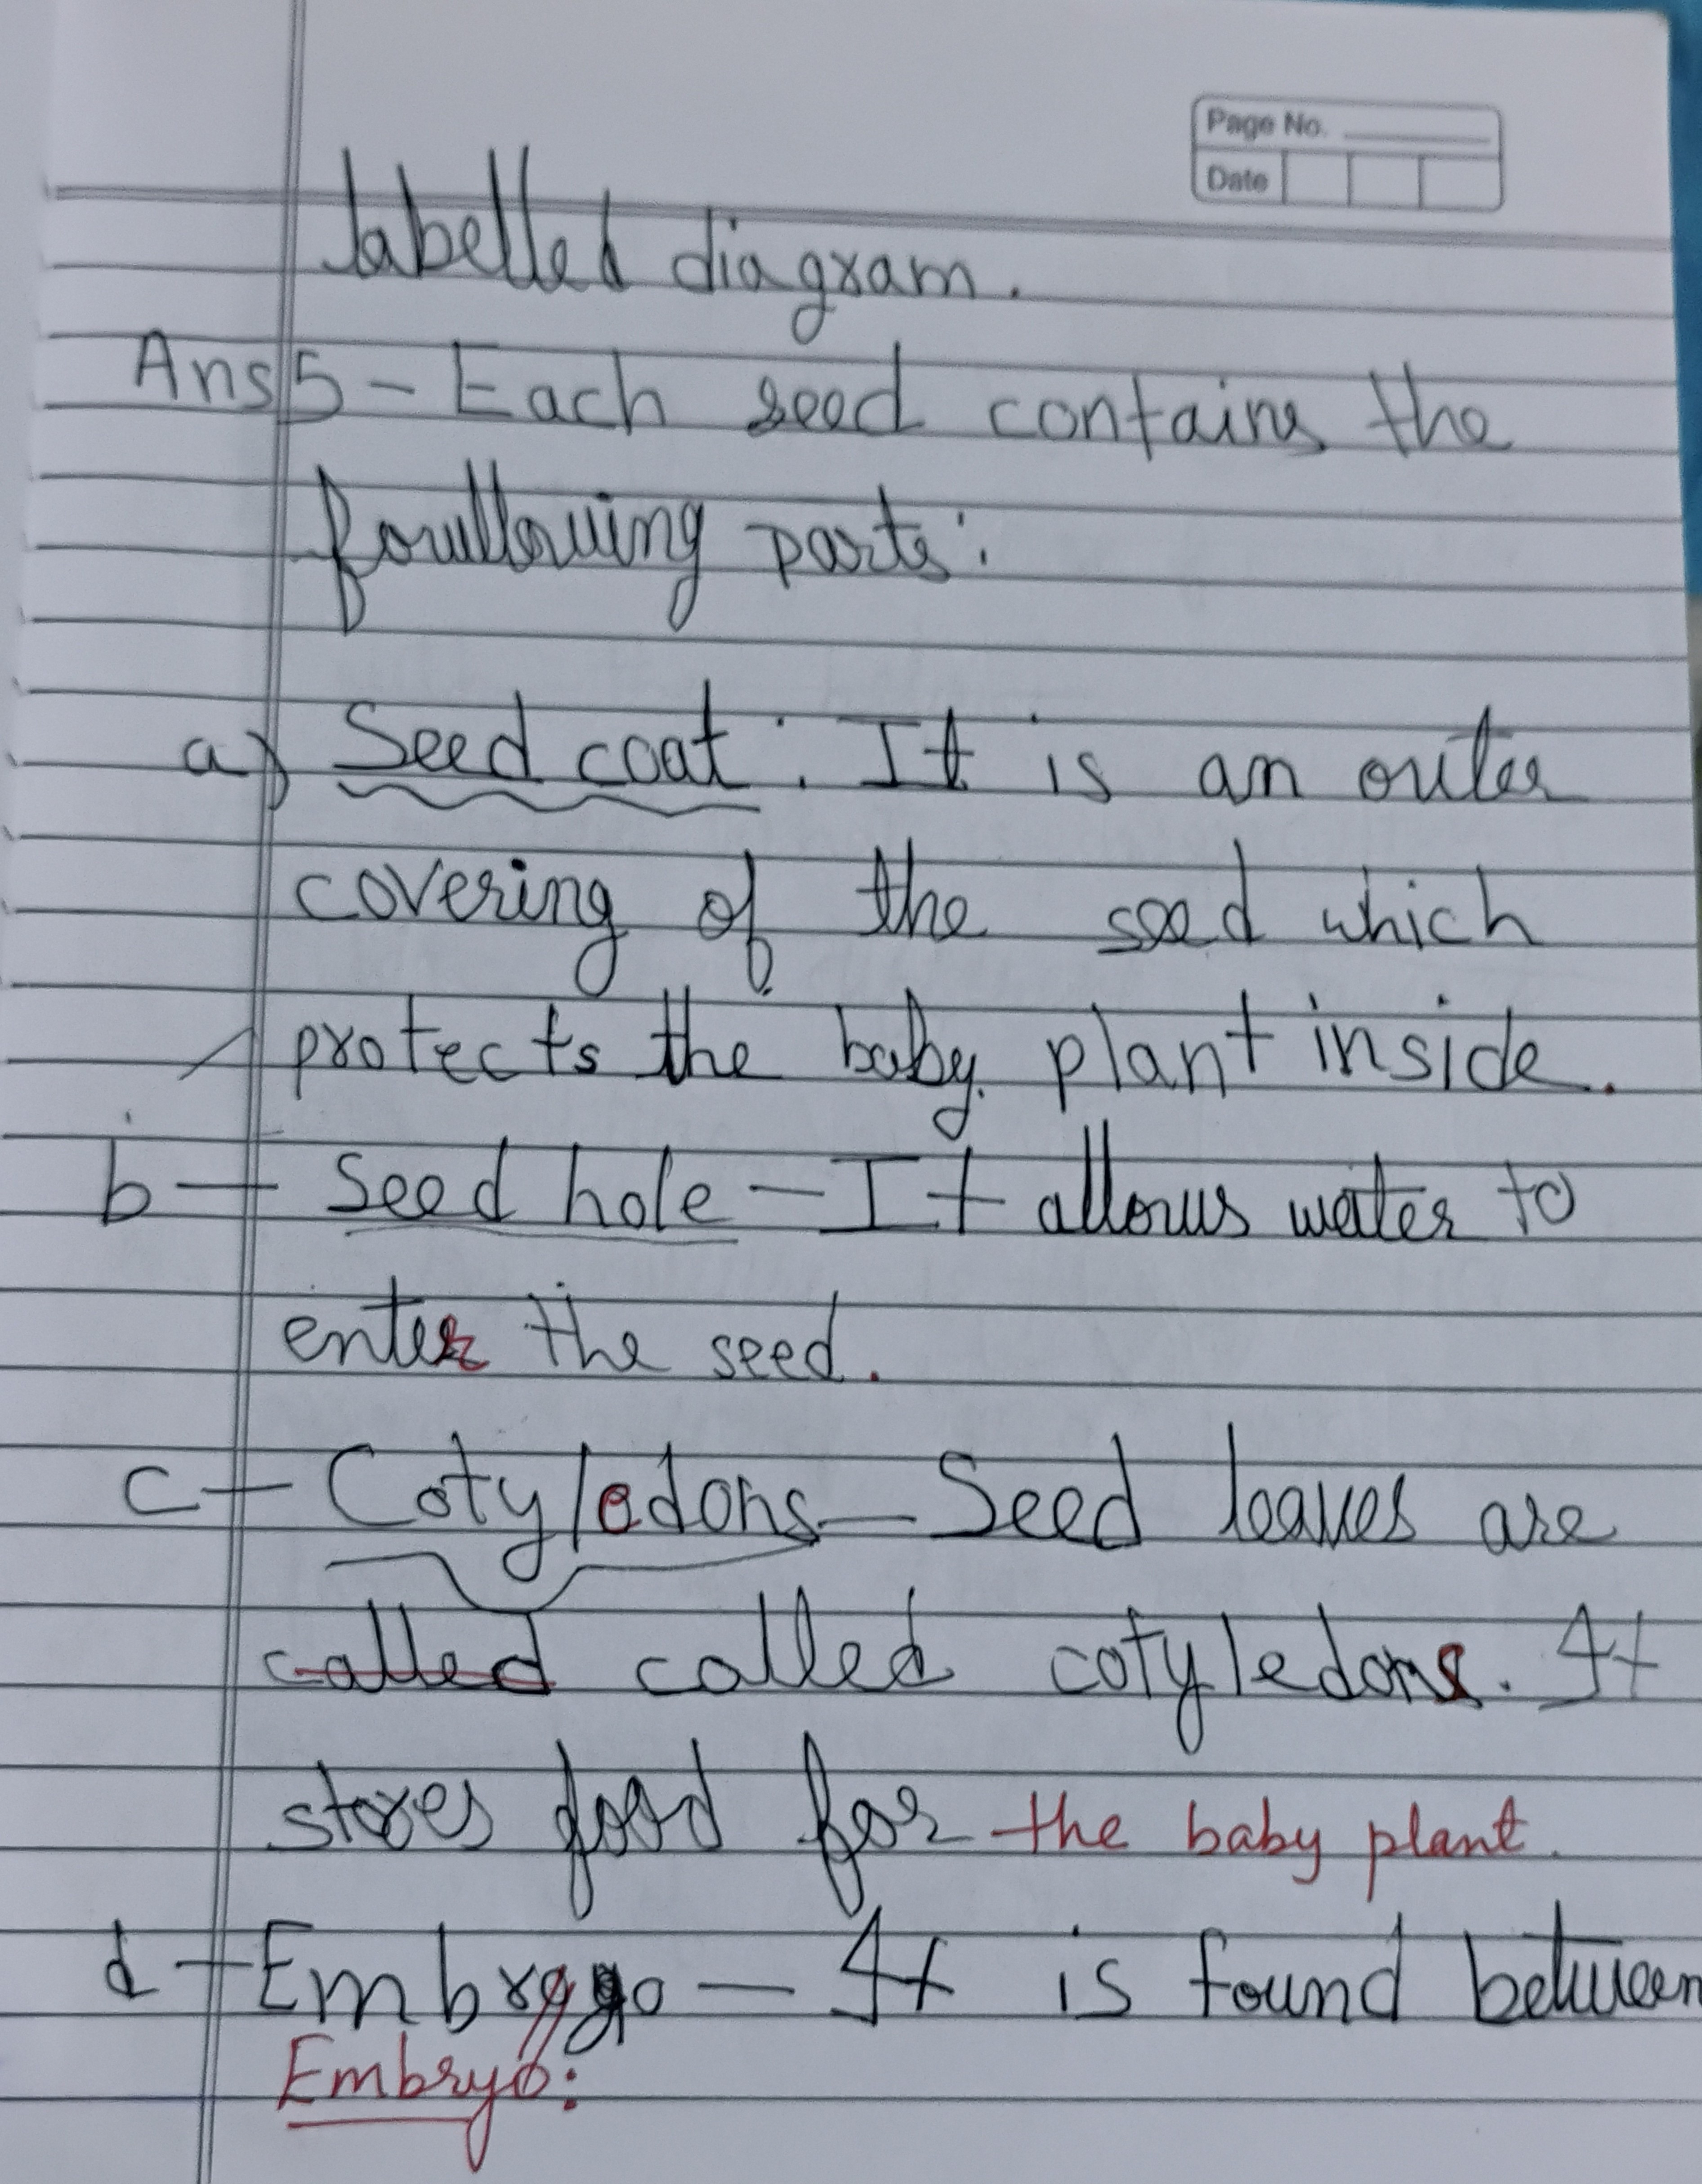 Page No.
Date
labelled diagram.
Ans5 - Each seed contains the
foullowing parts:
a) Seed coat : It is an outer
covering of the seed which
protects the baby plant inside.
b - Seed hole - It allows water to
enter the seed.
c - Cotyledons - Seed leaves are
called called cotyledons. It
stores food for the baby plant.
d - Embryyo - It is found between
Embryo: